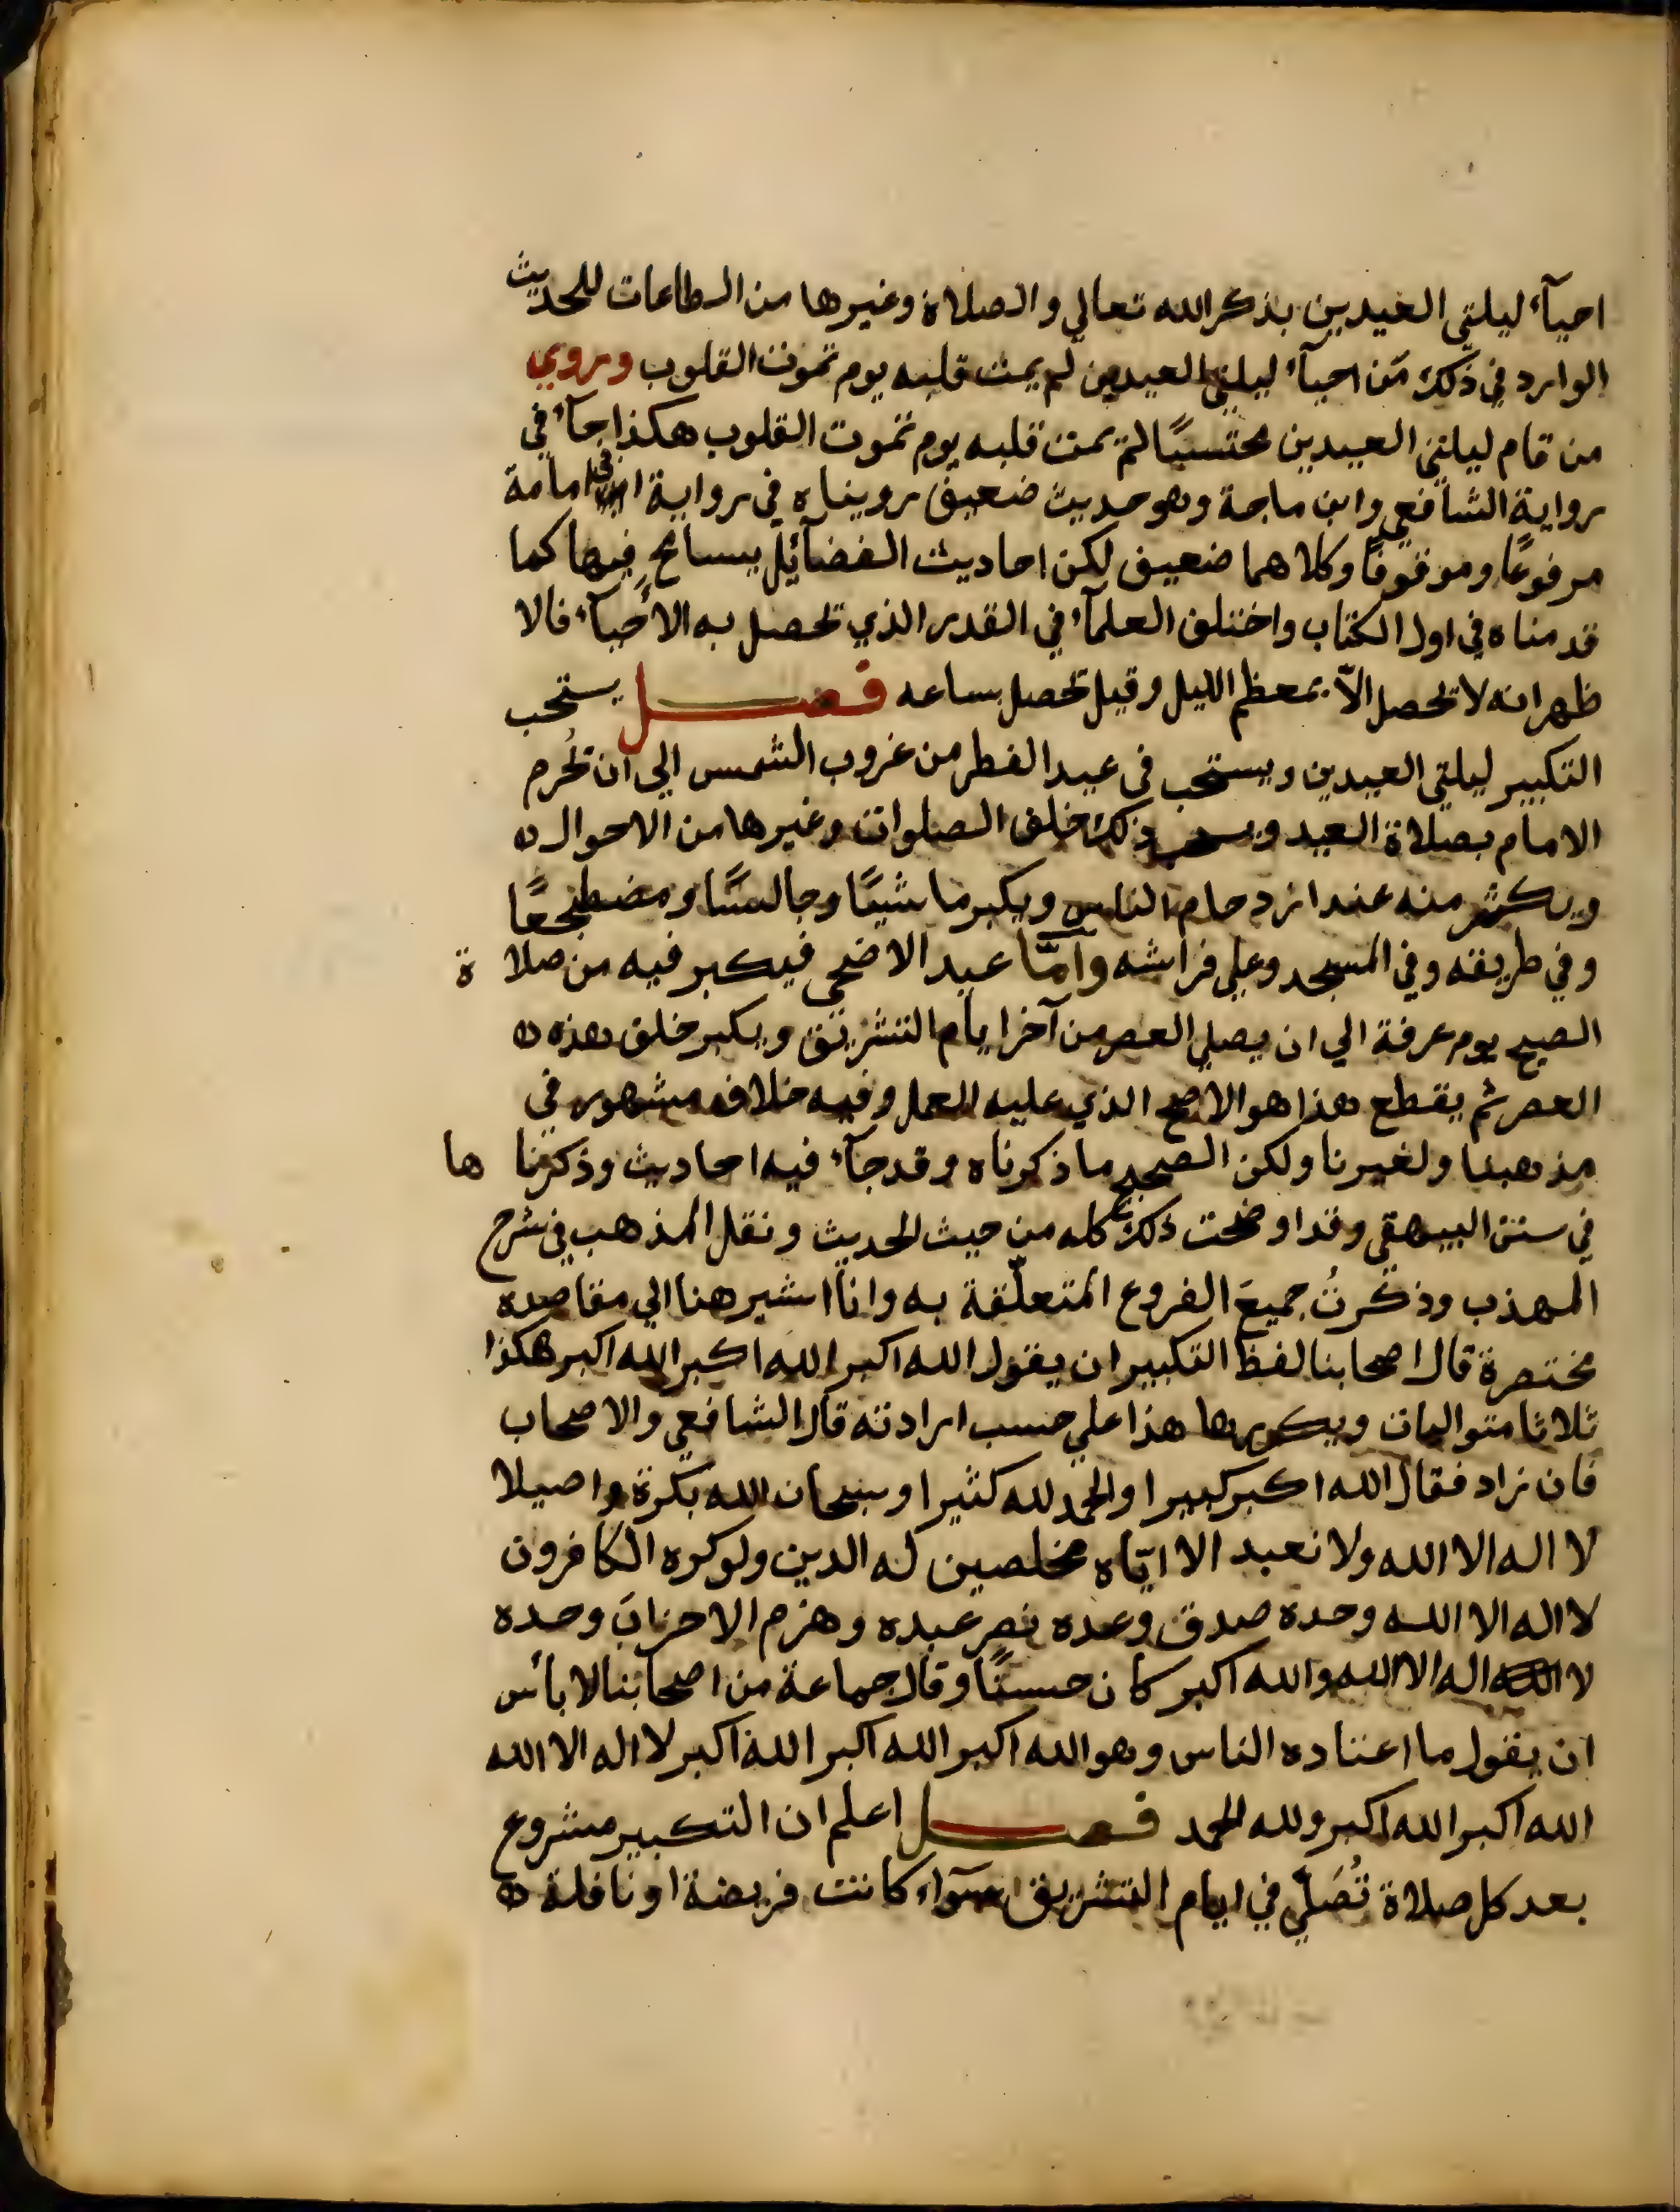 احيآء ليلتي العيدين بذكر الله تعالي والصلاة وغيرها من الطاعات للحديث
الوارد في ذلك من احيآء ليلتي العيدين لم يمت قلبه يوم تموت القلوب وروي
من قام ليلتي العيدين محتسبًا لم يمت قلبه يوم تموت القلوب هكذا جآء في
رواية الشافعي وابن ماجة وهو حديث ضعيف رويناه في رواية ابي امامة
مرفوعًا وموقوفًا وكلاهما ضعيف لكن احاديث الفضآئل يسامح فيها كما
قدمناه في اول الكتاب واختلف العلمآء في القدر الذي تحصل به الاحيآء فالا
ظهر انه لا تحصل الاّ بمعظم الليل وقيل تحصل بساعه فصل يستحب
التكبير ليلتي العيدين ويستحب في عيد الفطر من غروب الشمس الي ان تحُرم
الامام بصلاة العيد ويستحب ذلك خلف الصلوات وغيرها من الاحوال ه
ويكثر منه عند ازدحام الناس ويكبر ماشيًا وجالسًا ومضطجعًا
وفي طريقه وفي المسجد وعلي فراشه وآمّا عيد الاضحي فيكبر فيه من صلا ة
الصبح يوم عرفة الي ان يصلي العصر من آخر ايام التشريق ويكبر خلف هذه ه
العصر ثم يقطع هذا هو الاصح الذي عليه العمل وفيه خلاف مشهور في
مذهبنا ولغيرنا ولكن الصحيح ما ذكرناه وقد جآء فيه احاديث وذكرنا ها
في سنن البيهقي وقد اوضحت ذلك كله من حيث الحديث ونقل المذهب في شرح
المهذب وذكرتُ جميعَ الفروع المتعلّقة به وانا اشير هنا الي مقاصده
مختصرة قال اصحابنا لفظ التكبير ان يقول الله اكبر الله اكبر الله اكبر هكذا
ثلاثا متواليات ويكررها هذا علي حسب ارادته قال الشافعي والاصحاب
فان زاد فقال الله اكبر كبيرا والحمد لله كثيرا وسبحان الله بكرة واصيلا
لا اله الا الله ولا نعبد الا ايّاه مخلصين له الدين ولو كره الكافرون
لا اله الا الله وحده صدق وعده نصر عبده وهزم الاحزابَ وحده
لا اله الا الله والله اكبر كان حسنًا وقال جماعة من اصحابنا لا بأس
ان يقول ما اعتاده الناس وهو الله اكبر الله اكبر الله اكبر لا اله الا الله
الله اكبر الله اكبر ولله الحمد فصل اعلم ان التكبير مشروع
بعد كل صلاة تُصَليّ في ايام التشريق سوآء كانت فريضة او نافلة ه